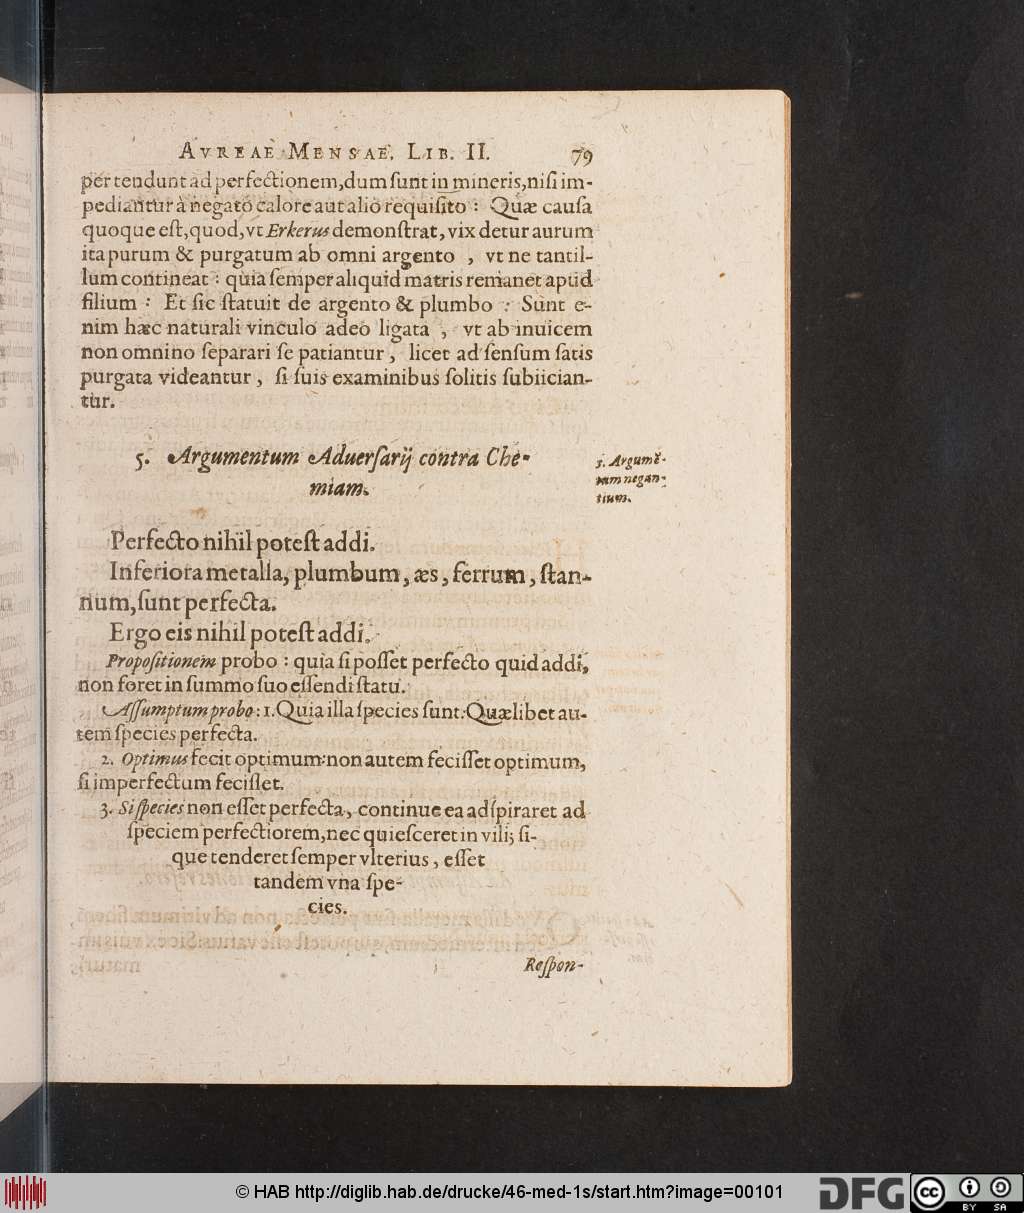 AVREAE MENSAE. LIB. II. 79
per tendunt ad perfectionem, dum sunt in mineris, nisi im-
pediantur à negato calore aut alio requisito : Quæ causa
quoque est, quod, vt Erkerus demonstrat, vix detur aurum
ita purum & purgatum ab omni argento , vt ne tantil-
lum contineat : quia semper aliquid matris remanet apud
filium : Et sic statuit de argento & plumbo : Sunt e-
nim hæc naturali vinculo adeo ligata , vt ab inuicem
non omnino separari se patiantur , licet ad sensum satis
purgata videantur , si suis examinibus solitis subiician-
tur.
5. Argumentum Aduersarij contra Che-
miam.
5. Argumē-
tum negan-
tium.
Perfecto nihil potest addi.
Inferiora metalla, plumbum, æs, ferrum, stan-
num, sunt perfecta.
Ergo eis nihil potest addi.
Propositionem probo : quia si posset perfecto quid addi,
non foret in summo suo essendi statu.
Assumptum probo: 1. Quia illa species sunt: Quælibet au-
tem species perfecta.
2. Optimus fecit optimum: non autem fecisset optimum,
si imperfectum fecisset.
3. Si species non esset perfecta, continue ea adspiraret ad
speciem perfectiorem, nec quiesceret in vili; si-
que tenderet semper vlterius, esset
tandem vna spe-
cies.
Respon-
© HAB http://diglib.hab.de/drucke/46-med-1s/start.htm?image=00101
DFG
cc
BY SA